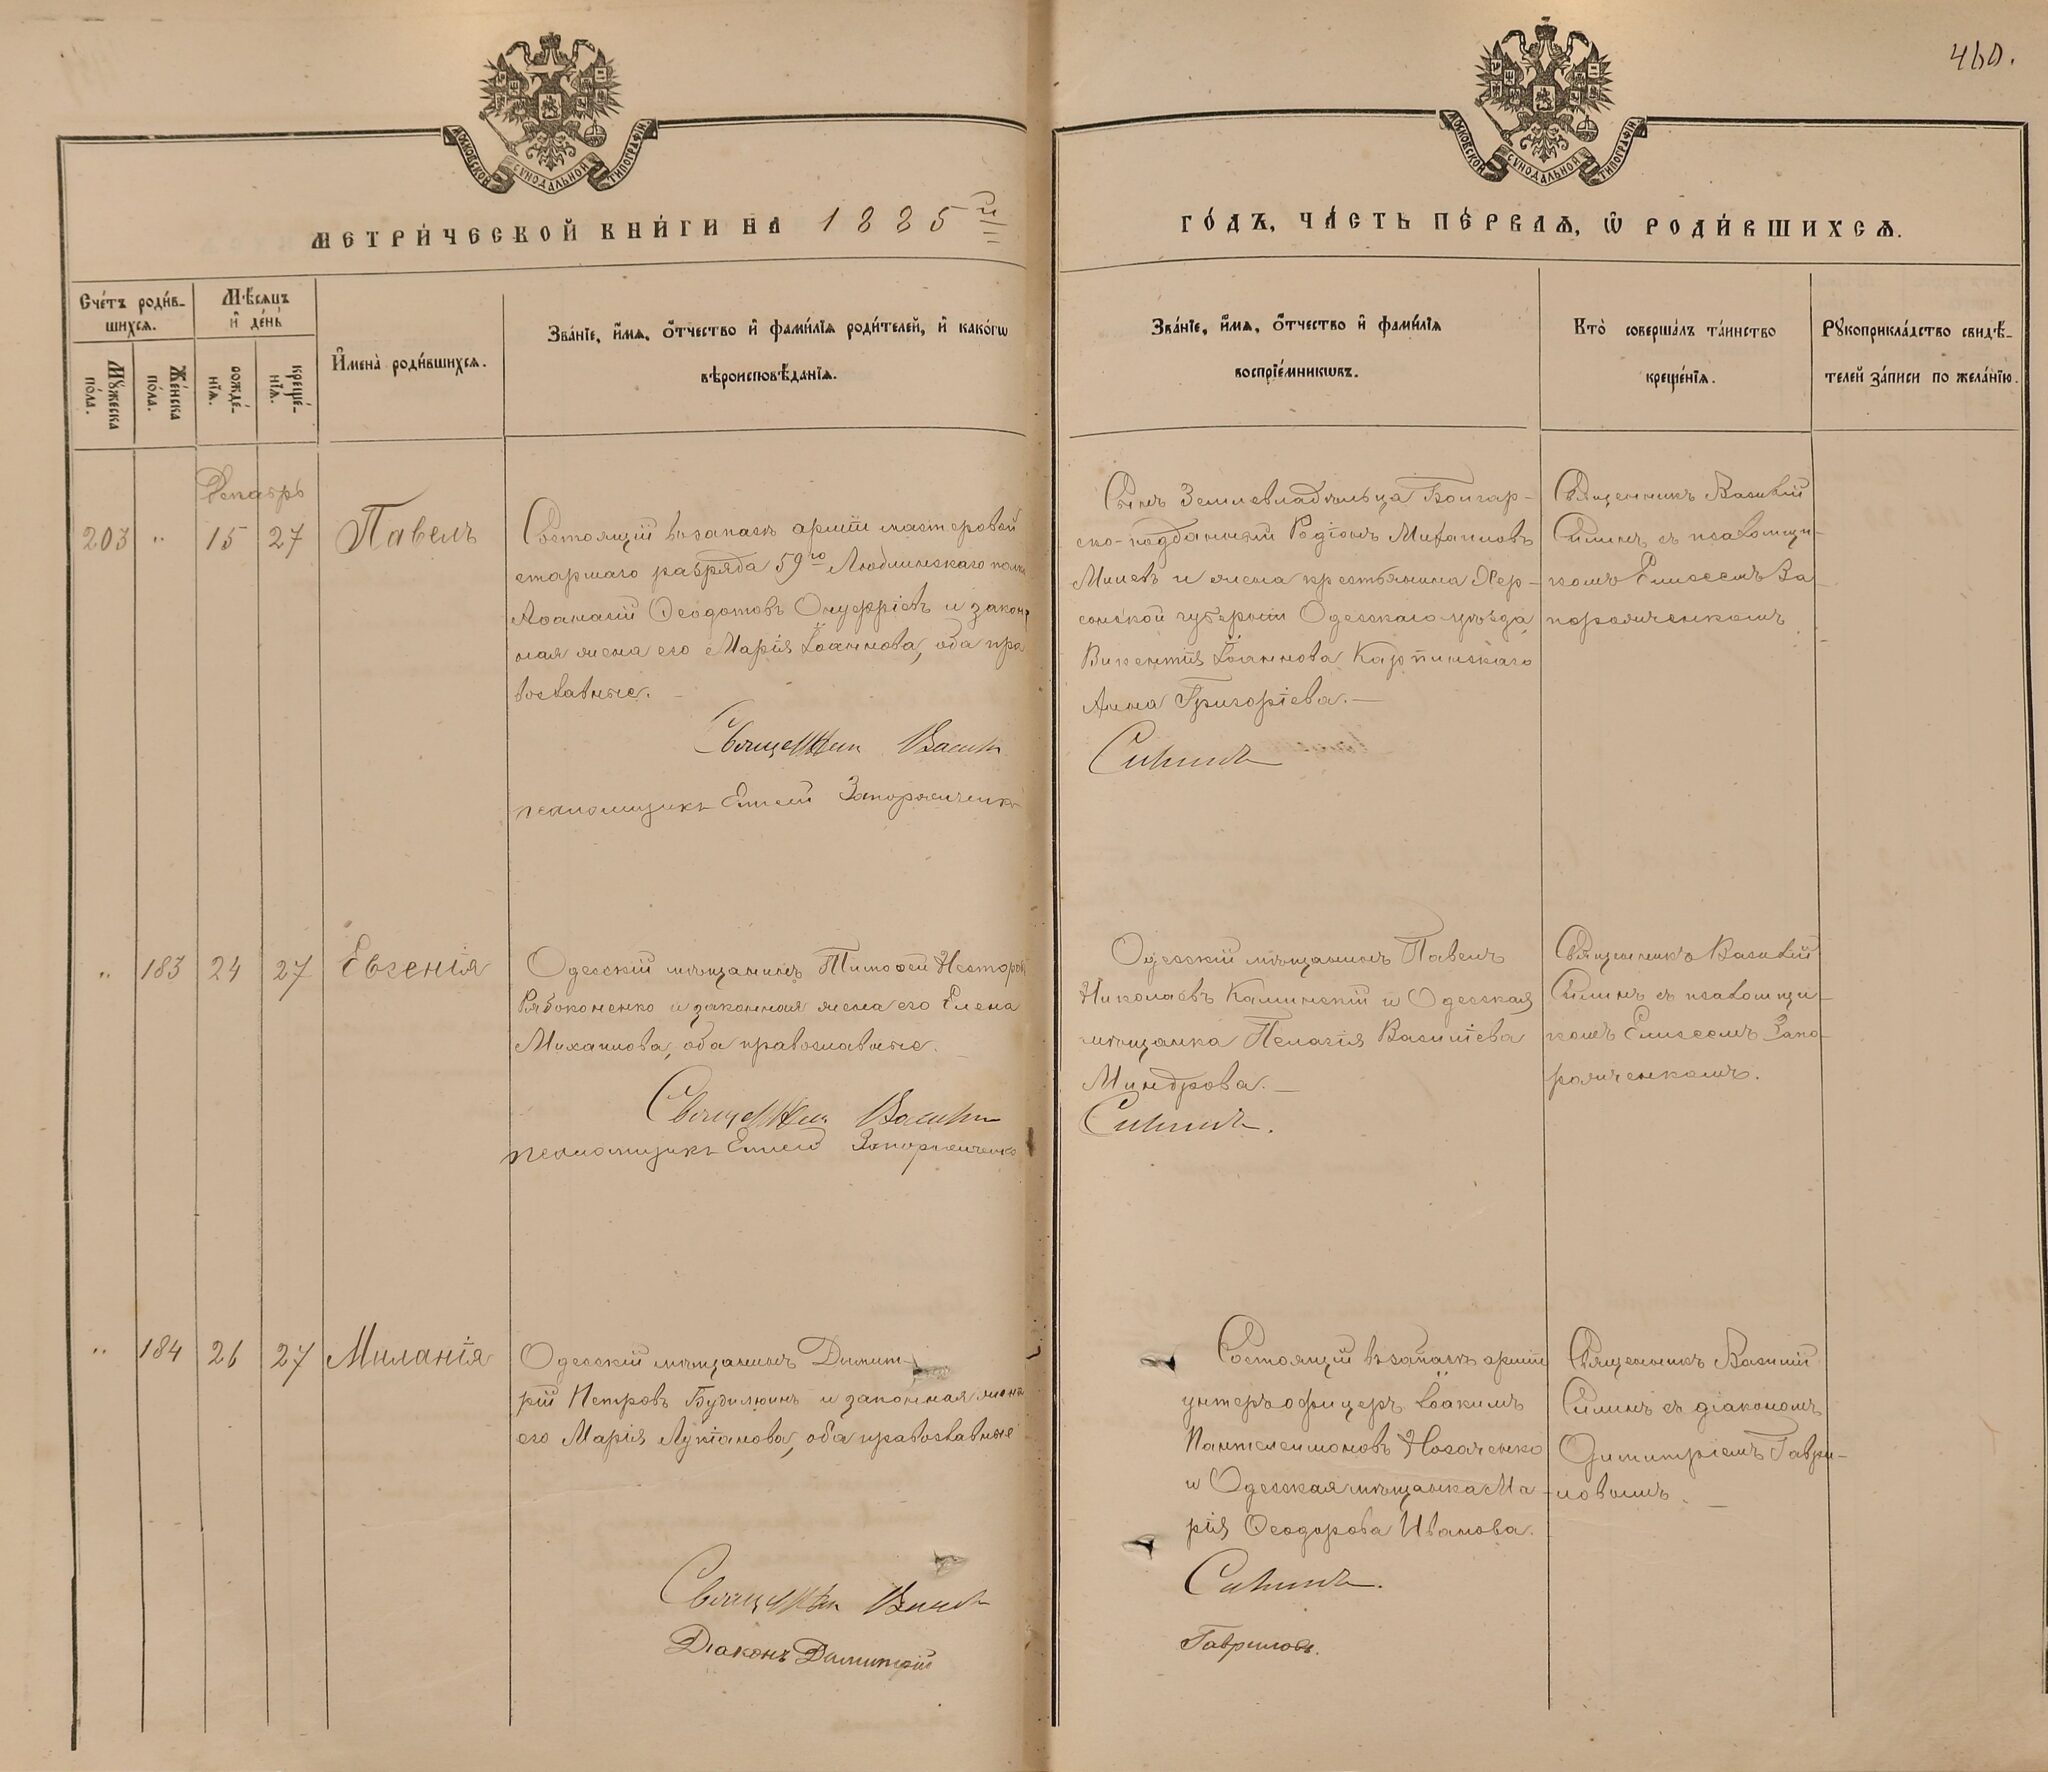 460.
МОСКОВСКОЙ СѴНОДАЛЬНОЙ ТИПОГРАФІИ
МОСКОВСКОЙ СѴНОДАЛЬНОЙ ТИПОГРАФІИ
МЕТРИ́ЧЕСКОЙ КНИ́ГИ НА 1885й
ГО́ДЪ, ЧА́СТЬ ПЕ́РВАѦ, Ѡ РОДИ́ВШИХСѦ.
Сче́тъ роди́в-
шихсѧ.
Мꙋ́жеска
по́ла.
Же́нска
по́ла.
Мѣ́сѧцъ
и҆ де́нь
рожде́-
нїѧ.
креще́-
нїѧ.
И҆мена̀ роди́вшихсѧ.
Зва́нїе, и҆́мѧ, ѻ҆́тчество и҆ фами́лїѧ роди́телей, и҆ како́гѡ
вѣроисповѣ́данїѧ.
Зва́нїе, и҆́мѧ, ѻ҆́тчество и҆ фами́лїѧ
воспрїе́мникѡвъ.
Кто̀ соверша́лъ та́инство
креще́нїѧ.
Рꙋкоприкла́дство свидѣ́-
телей за́писи по жела́нїю.
Декабрь
203 " 15 27 Павелъ
Состоящій въ запасѣ арміи мастеровой
старшаго разряда 59го Люблинскаго полка
Аѳанасій Ѳеодотовъ Онуфріевъ и закон
ная жена его Марія Іоаннова, оба пра
вославные.
Священник Василій
псаломщикъ Елисей Запорожченко
Сынъ Землевладѣльца Болгар-
ско-подданный Родіонъ Михаиловъ
Милевъ и жена крестьянина Хер-
сонской губерніи Одесскаго уѣзда
Викентія Іоаннова Карпинскаго
Анна Григоріева.
Силинъ
Священникъ Василій
Силинъ съ псаломщи-
комъ Елисеемъ За-
порожченкомъ
" 183 24 27 Евгенія
Одесскій мѣщанинъ Тимоѳей Несторов
Рябоконенко и законная жена его Елена
Михаилова, оба православные.
Священник Василій
псаломщикъ Елисей Запорожченко
Одесскій мѣщанинъ Павелъ
Николаевъ Калинскій и Одесская
мѣщанка Пелагія Василіева
Миндрова.
Силинъ.
Священникъ Василій
Силинъ съ псаломщи-
комъ Елисеемъ Запо-
рожченкомъ.
" 184 26 27 Миланія
Одесскій мѣщанинъ Димит-
рій Петровъ Будилюинъ и законная жена
его Марія Лукіанова, оба православные
Священник Василій
Діаконъ Димитрій
Состоящій въ запасѣ арміи
унтеръ офицеръ Іоакимъ
Пантелеимоновъ Носаченко
и Одесская мѣщанка Ма-
рія Ѳеодорова Иванова.
Силинъ.
Гавриловъ.
Священникъ Василій
Силинъ съ діакономъ
Димитріемъ Гаври-
ловымъ.